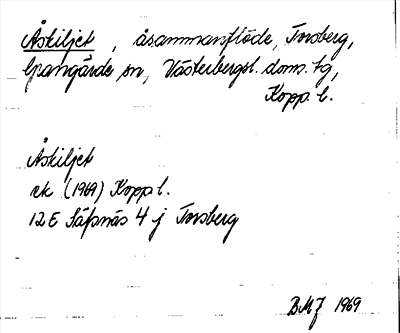 Åskiljet, åsammanflöde, Torsberg,
Grangärde sn, Västerbergsl. doms. tg,
Kopp. l.
Åskiljet
ek (1969) Kopp l.
12E Säfsnäs 4 j Torsberg
BMJ 1969